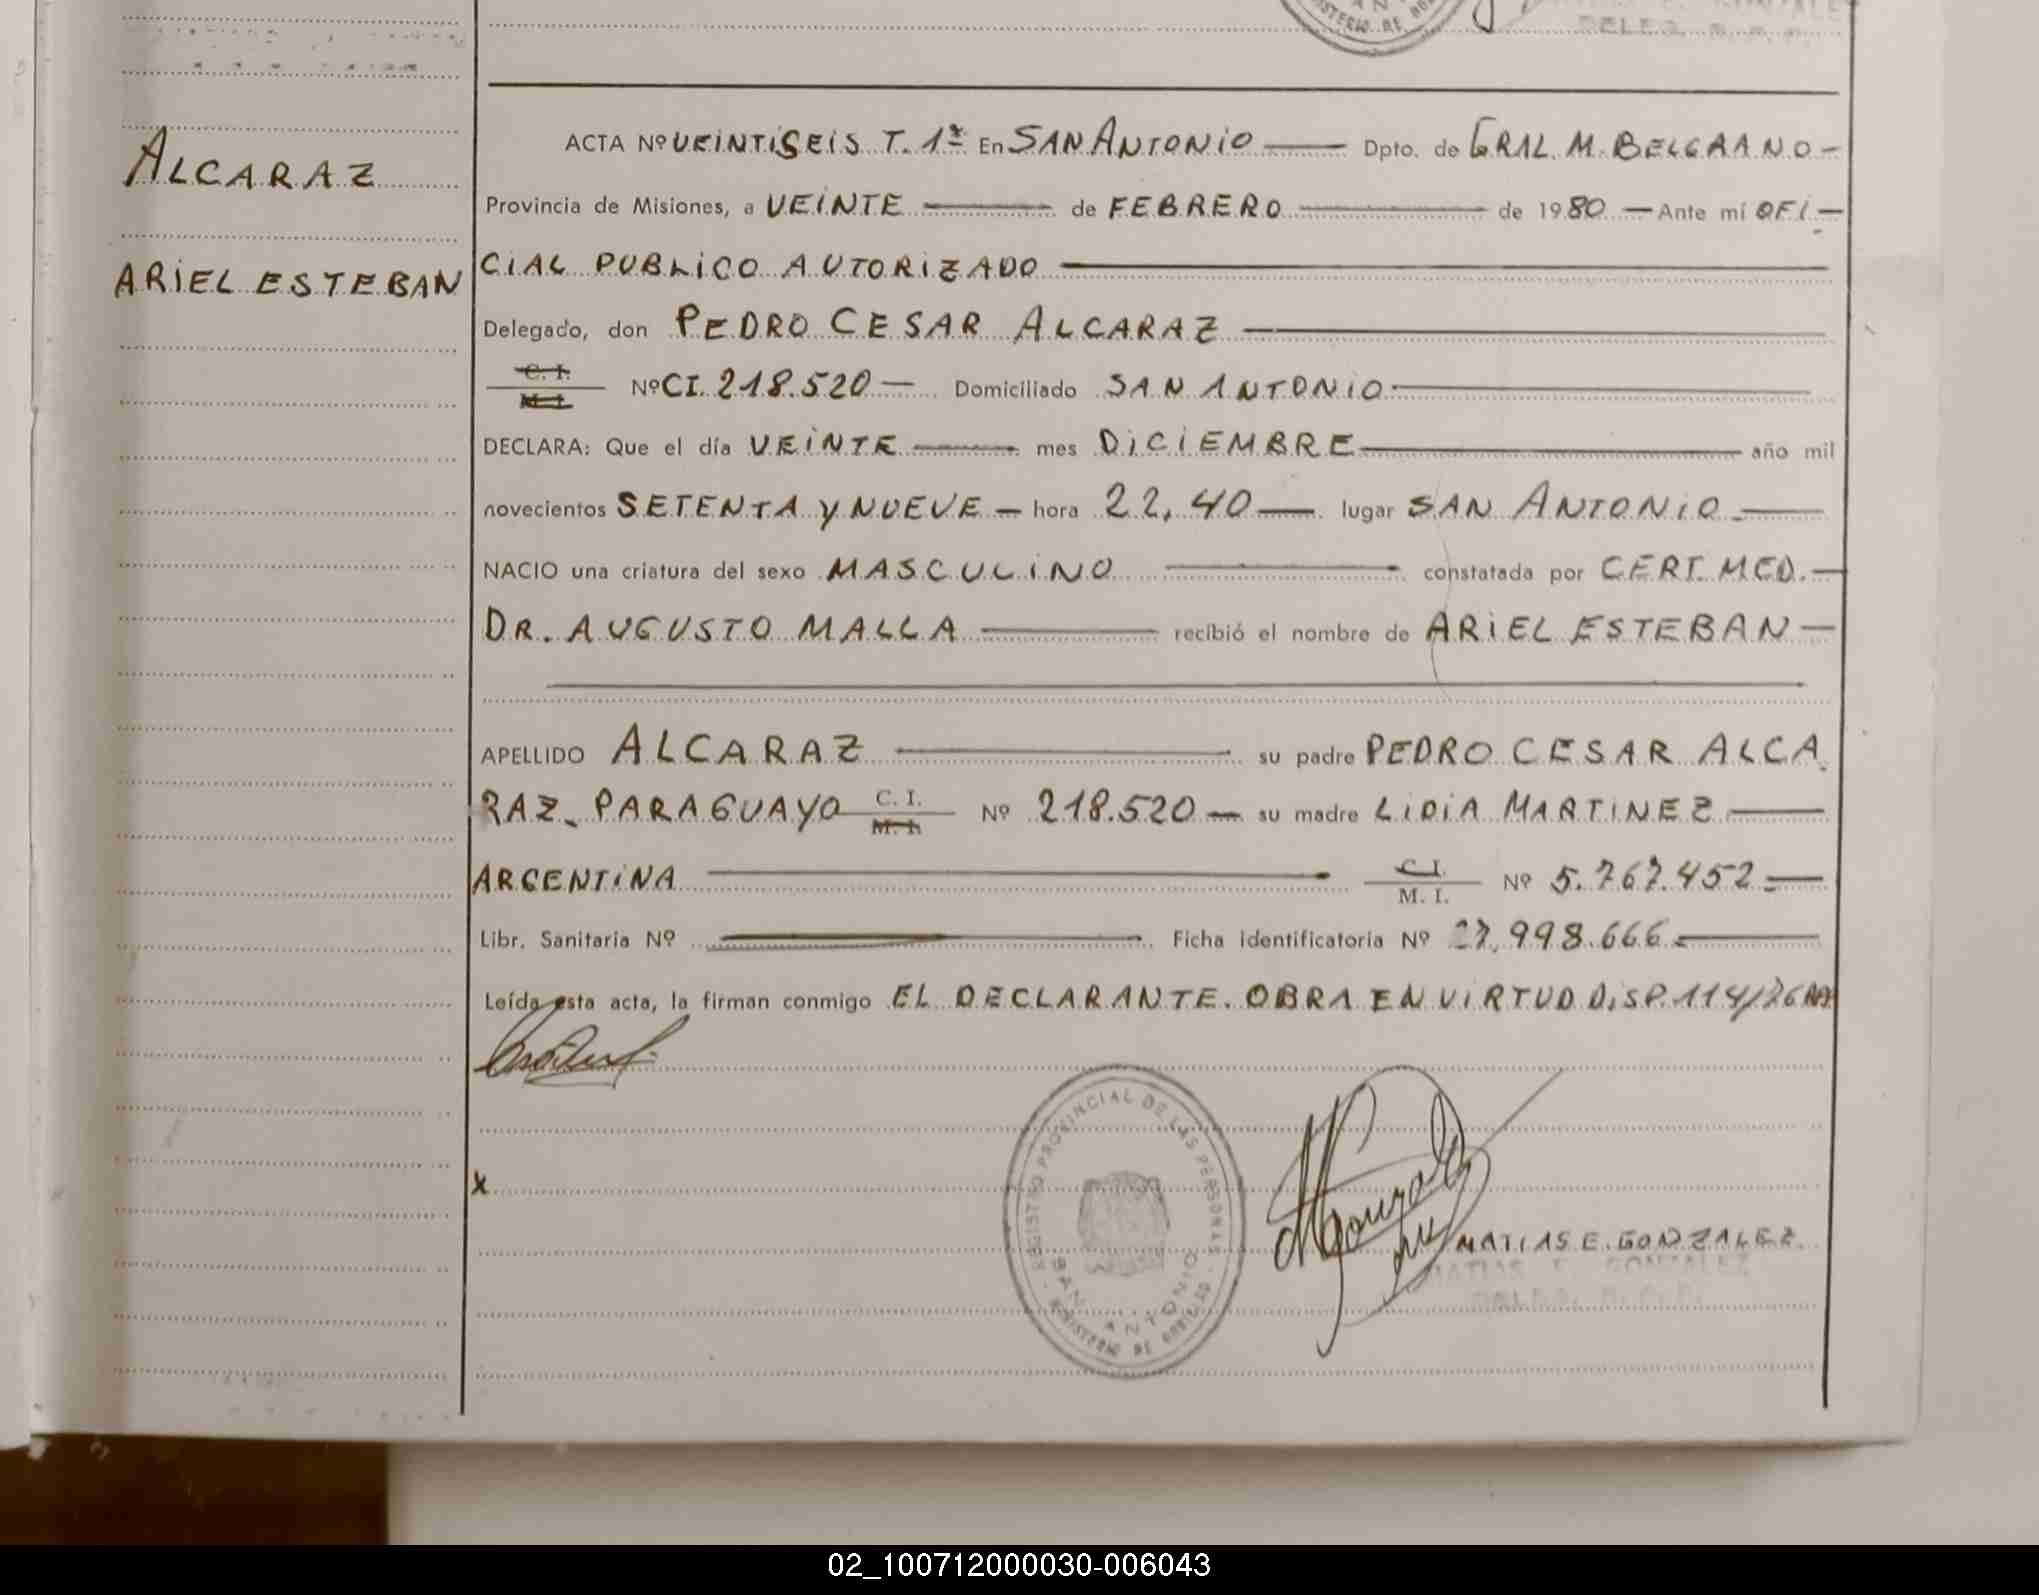 ALCARAZ
ARIEL ESTEBAN
ACTA Nº VEINTISEIS T. 1º En SAN ANTONIO — Dpto. de GRAL. M. BELGRANO -
Provincia de Misiones, a VEINTE — de FEBRERO — de 1980 — Ante mí OFI -
CIAL PUBLICO AUTORIZADO —
Delegado, don PEDRO CESAR ALCARAZ —
C. I. / M. I. Nº CI. 218.520 — Domiciliado SAN ANTONIO —
DECLARA: Que el día VEINTE — mes DICIEMBRE — año mil
novecientos SETENTA Y NUEVE — hora 22,40 — lugar SAN ANTONIO —
NACIO una criatura del sexo MASCULINO — constatada por CERT. MED. —
DR. AUGUSTO MALLA — recibió el nombre de ARIEL ESTEBAN —
APELLIDO ALCARAZ — su padre PEDRO CESAR ALCA
RAZ. PARAGUAYO C. I. / M. I. Nº 218.520 — su madre LIDIA MARTINEZ —
ARGENTINA — C. I. / M. I. Nº 5.767.452 —
Libr. Sanitaria Nº — Ficha identificatoria Nº 27.998.666 —
Leída esta acta, la firman conmigo EL DECLARANTE. OBRA EN VIRTUD DISP. 114/76
REGISTRO PROVINCIAL DE LAS PERSONAS
SAN ANTONIO
MINISTERIO DE GOBIERNO
x
MATIAS E. GONZALEZ
MATIAS E. GONZALEZ
02_100712000030-006043